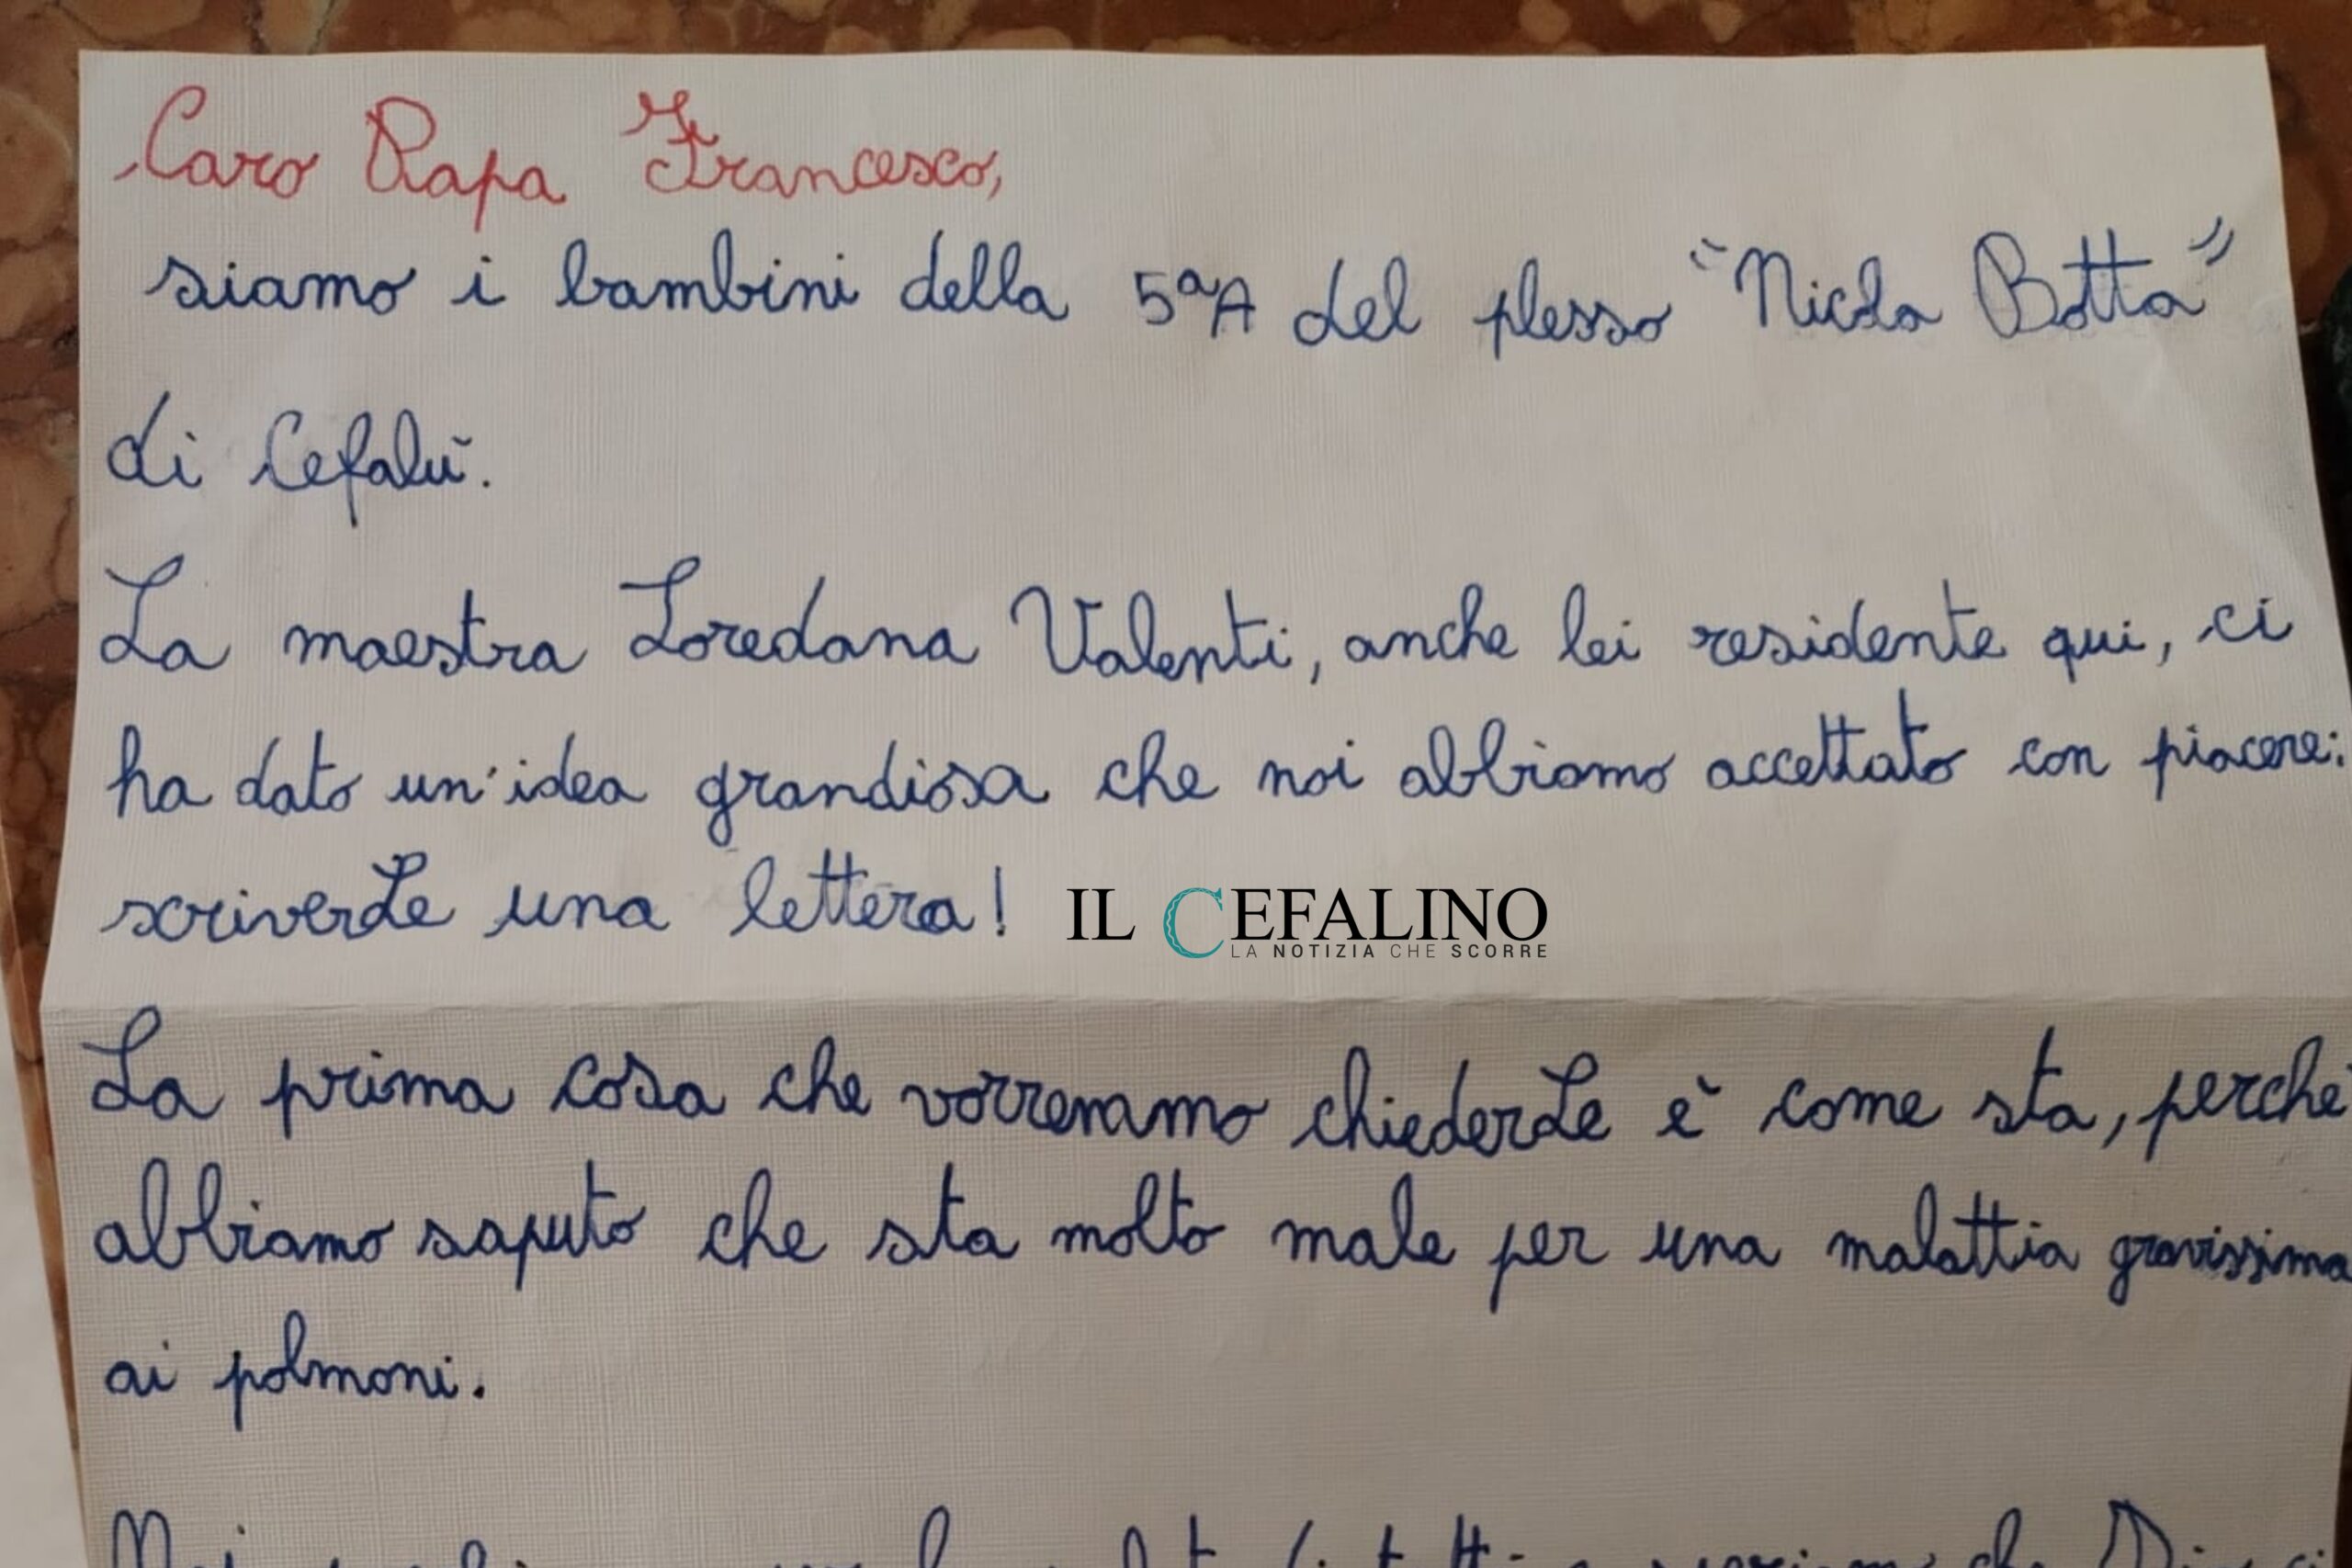 Caro Papa Francesco,
siamo i bambini della 5ªA del plesso "Nicola Botta"
di Cefalù.
La maestra Loredana Valenti, anche lei residente qui, ci
ha dato un'idea grandiosa che noi abbiamo accettato con piacere:
scriverLe una lettera!
IL CEFALINO
LA NOTIZIA CHE SCORRE
La prima cosa che vorremmo chiederLe è come sta, perchè
abbiamo saputo che sta molto male per una malattia gravissima
ai polmoni.